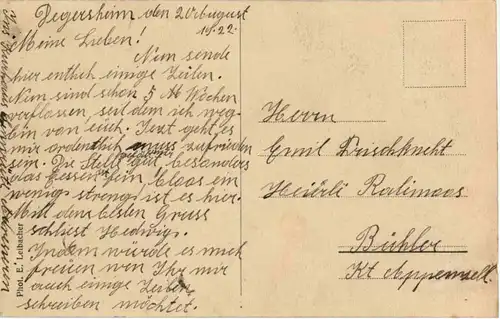 Degersheim den 20 August
1922.
Meine Lieben!
Nun sende
hier entlich einige Zeilen.
Nun sind schon 5 Wochen
verflossen, seit dem ich weg
bin von euch. Jezt geht es
mir ordentlich muss zufrieden
sein. Die Stelle gut besonders
das Essen fein, blaos ein
wenig streng ist es hier.
Mit dem besten Gruss
schliest Hedwig.
Indem würde es mich
freuen wen Ihr mir
auch einige Zeilen
schreiben möchtet.
Phot. E. Leibacher
Herrn
Emil Frischknecht
Bühler
Kt Appenzell.